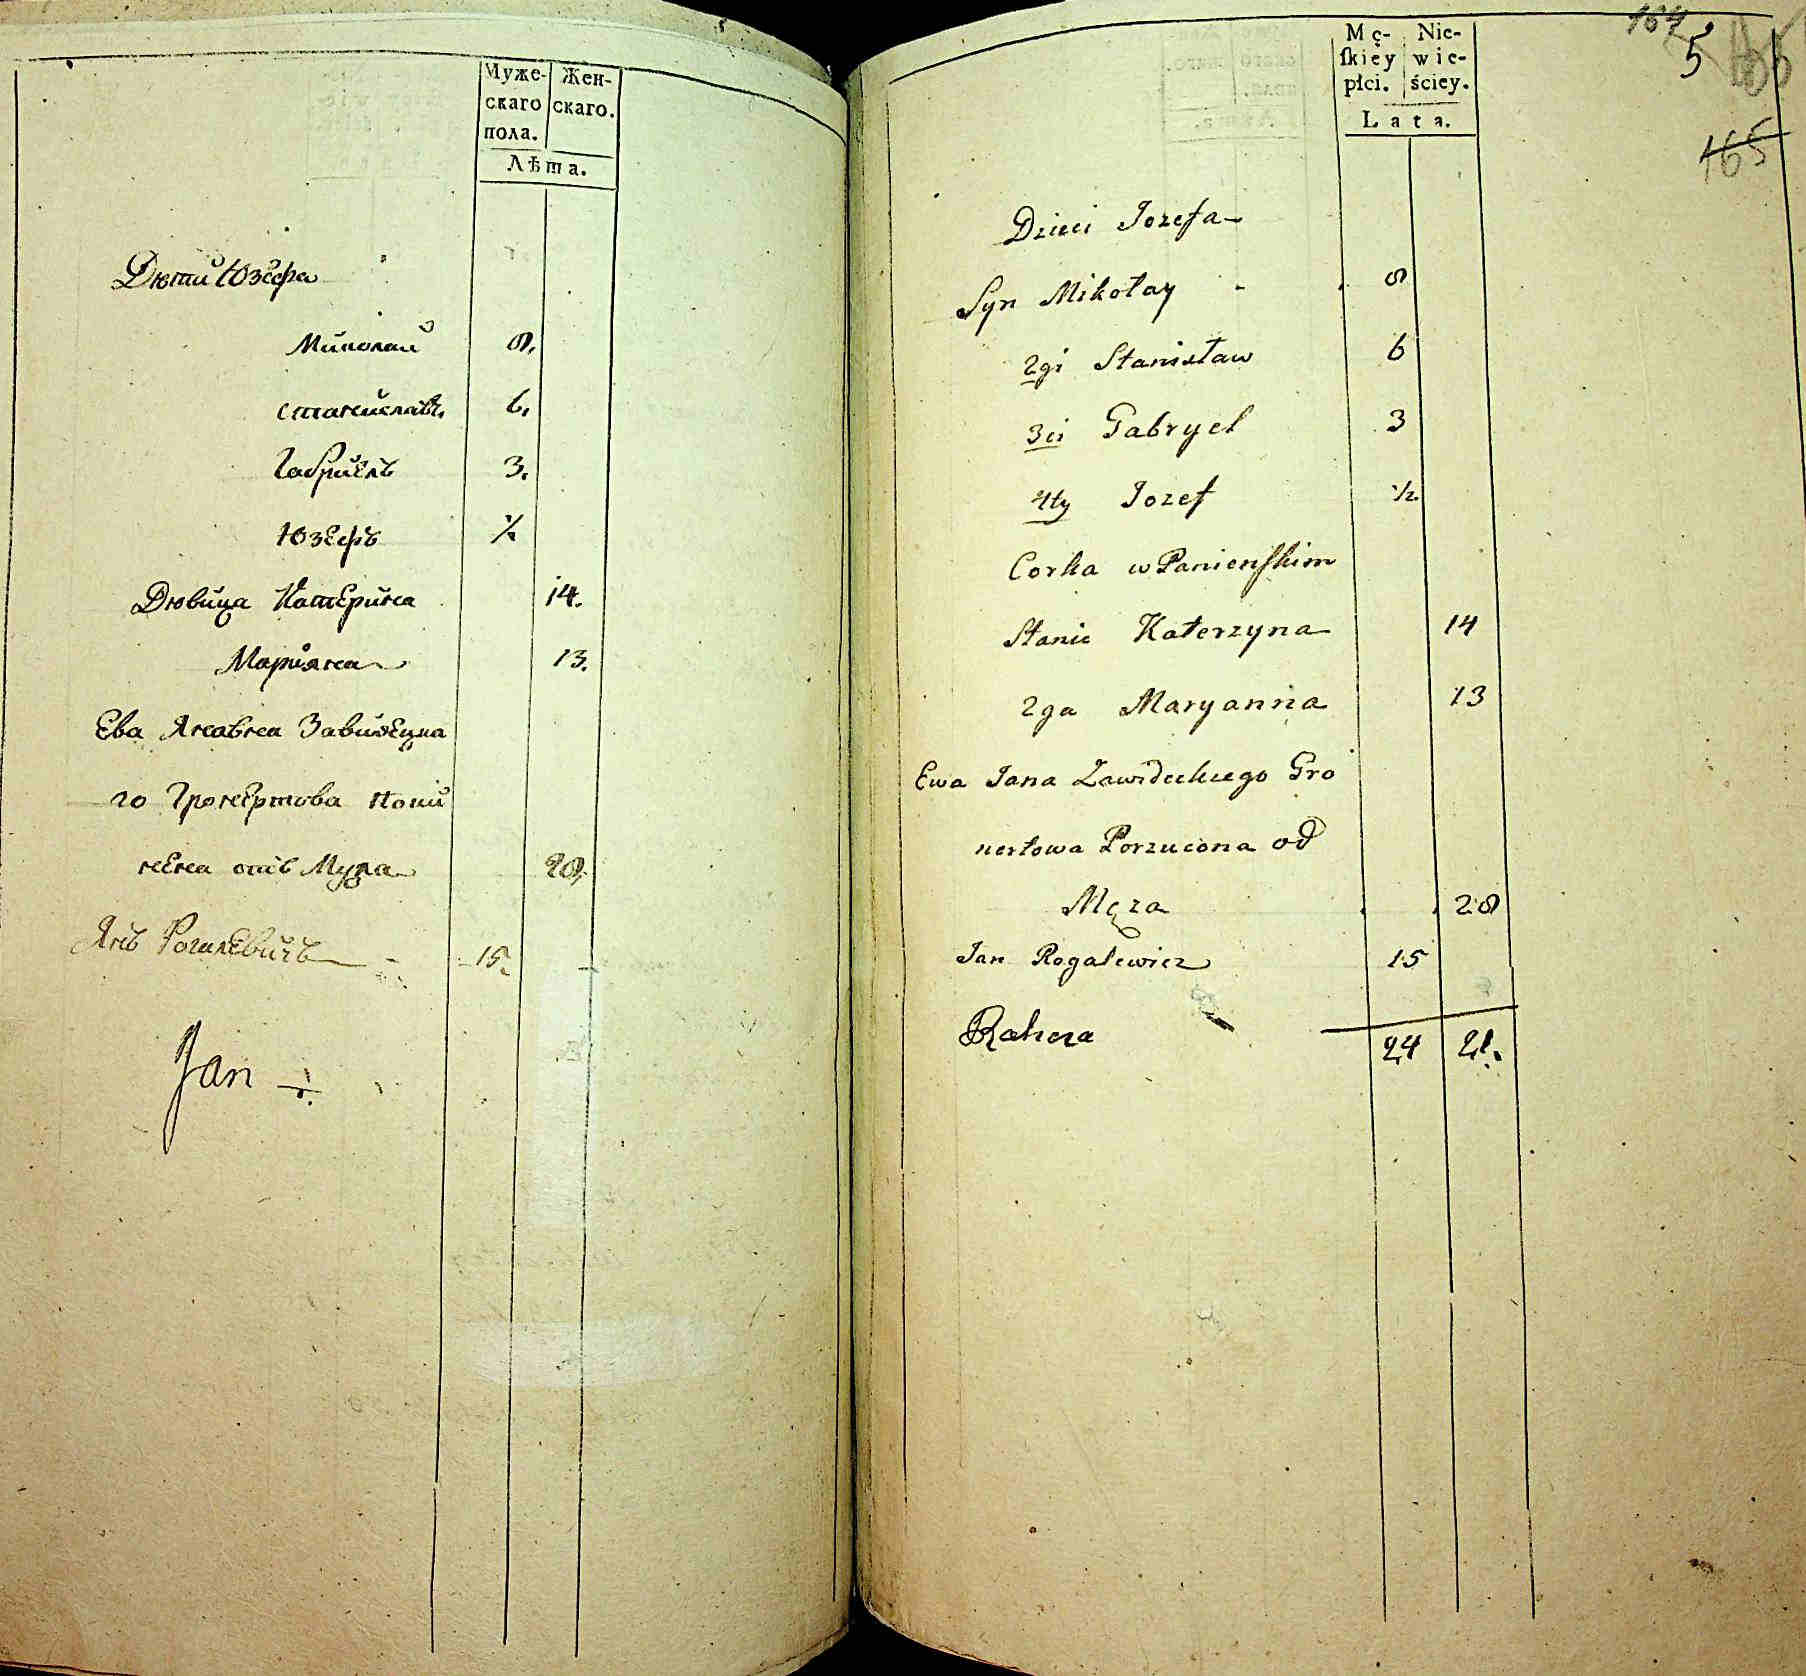 Муже- Жен-
скаго скаго.
пола.
Лѣта.
Дѣти Юзефа
Миколай 8.
Станиславъ 6.
Габриель 3.
Юзефъ ½
Дѣвица Катерина 14.
Марiяна 13.
Ева Янавна Завидецка
го Гронертова Поки
нена отъ Мужа 28.
Янъ Рогалевичъ 15.
Jan
164
5
165
Mę- Nie-
ſkiéy wie-
płci. ściey.
Lata.
Dzieci Jozefa
Syn Mikołay 8
2gi Stanisław 6
3ci Gabryel 3
4ty Jozef ½
Corka w Panienſkim
Stanie Katerzyna 14
2ga Maryanna 13
Ewa Jana Zawideckiego Gro
nertowa Porzucona od
Męża 28
Jan Rogalewicz 15
24 21.